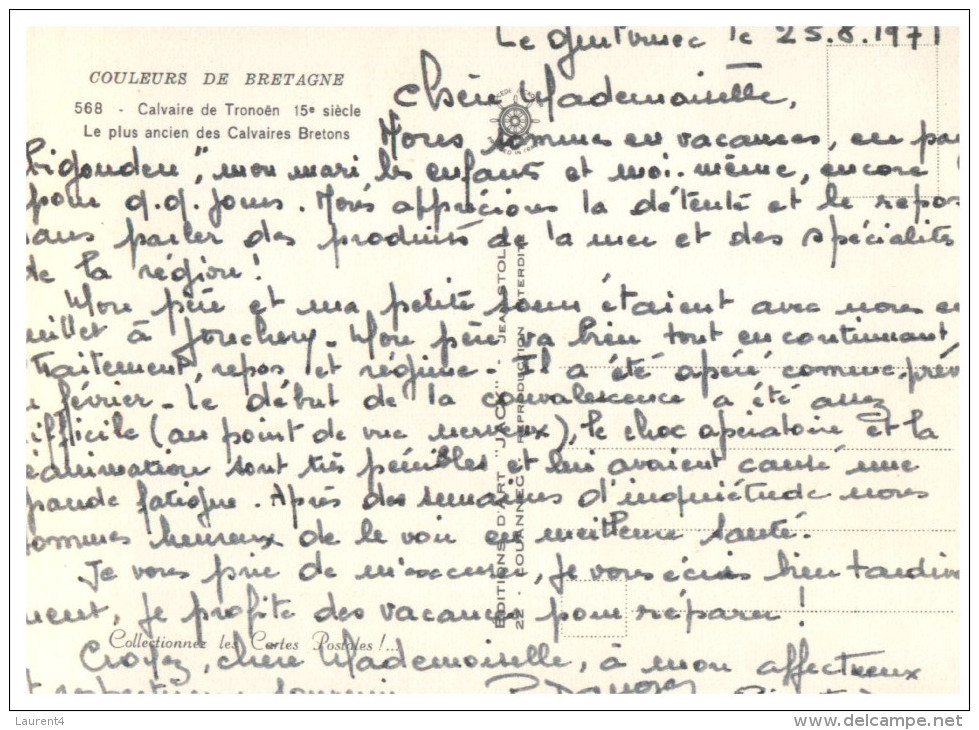 Le Guilvinec le 25.8.1971
COULEURS DE BRETAGNE
568 - Calvaire de Tronoën 15e siècle
Le plus ancien des Calvaires Bretons
Chère Mademoiselle,
Nous sommes en vacances, en pay
bigouden", mon mari les enfants et moi-même, encore
pour q.q. jours. Nous apprécions la détente et le repos
sans parler des produits de la mer et des spécialités
de la région!
Mon père et ma petite soeur étaient avec nous en
juillet à Jonchery. Mon père va bien tout en continuant
traitement, repos et régime. Il a été opéré comme prév
février. Le début de la convalescence a été assez
difficile (au point de vue nerveux), le choc opératoire et la
réanimation sont très pénibles et lui avaient causé une
grande fatigue. Après des semaines d'inquiétude nous
sommes heureux de le voir en meilleure santé.
Je vous prie de m'excuser, je vous écris bien tardive
ment, je profite des vacances pour réparer!
Croyez, chère Mademoiselle, à mon affectueux
souvenir
Collectionnez les Cartes Postales!...
ÉDITIONS D'ART "JACK" - JEAN STOLL
22 - LOUANNEC - REPRODUCTION INTERDITE
Laurent4
www.delcampe.net